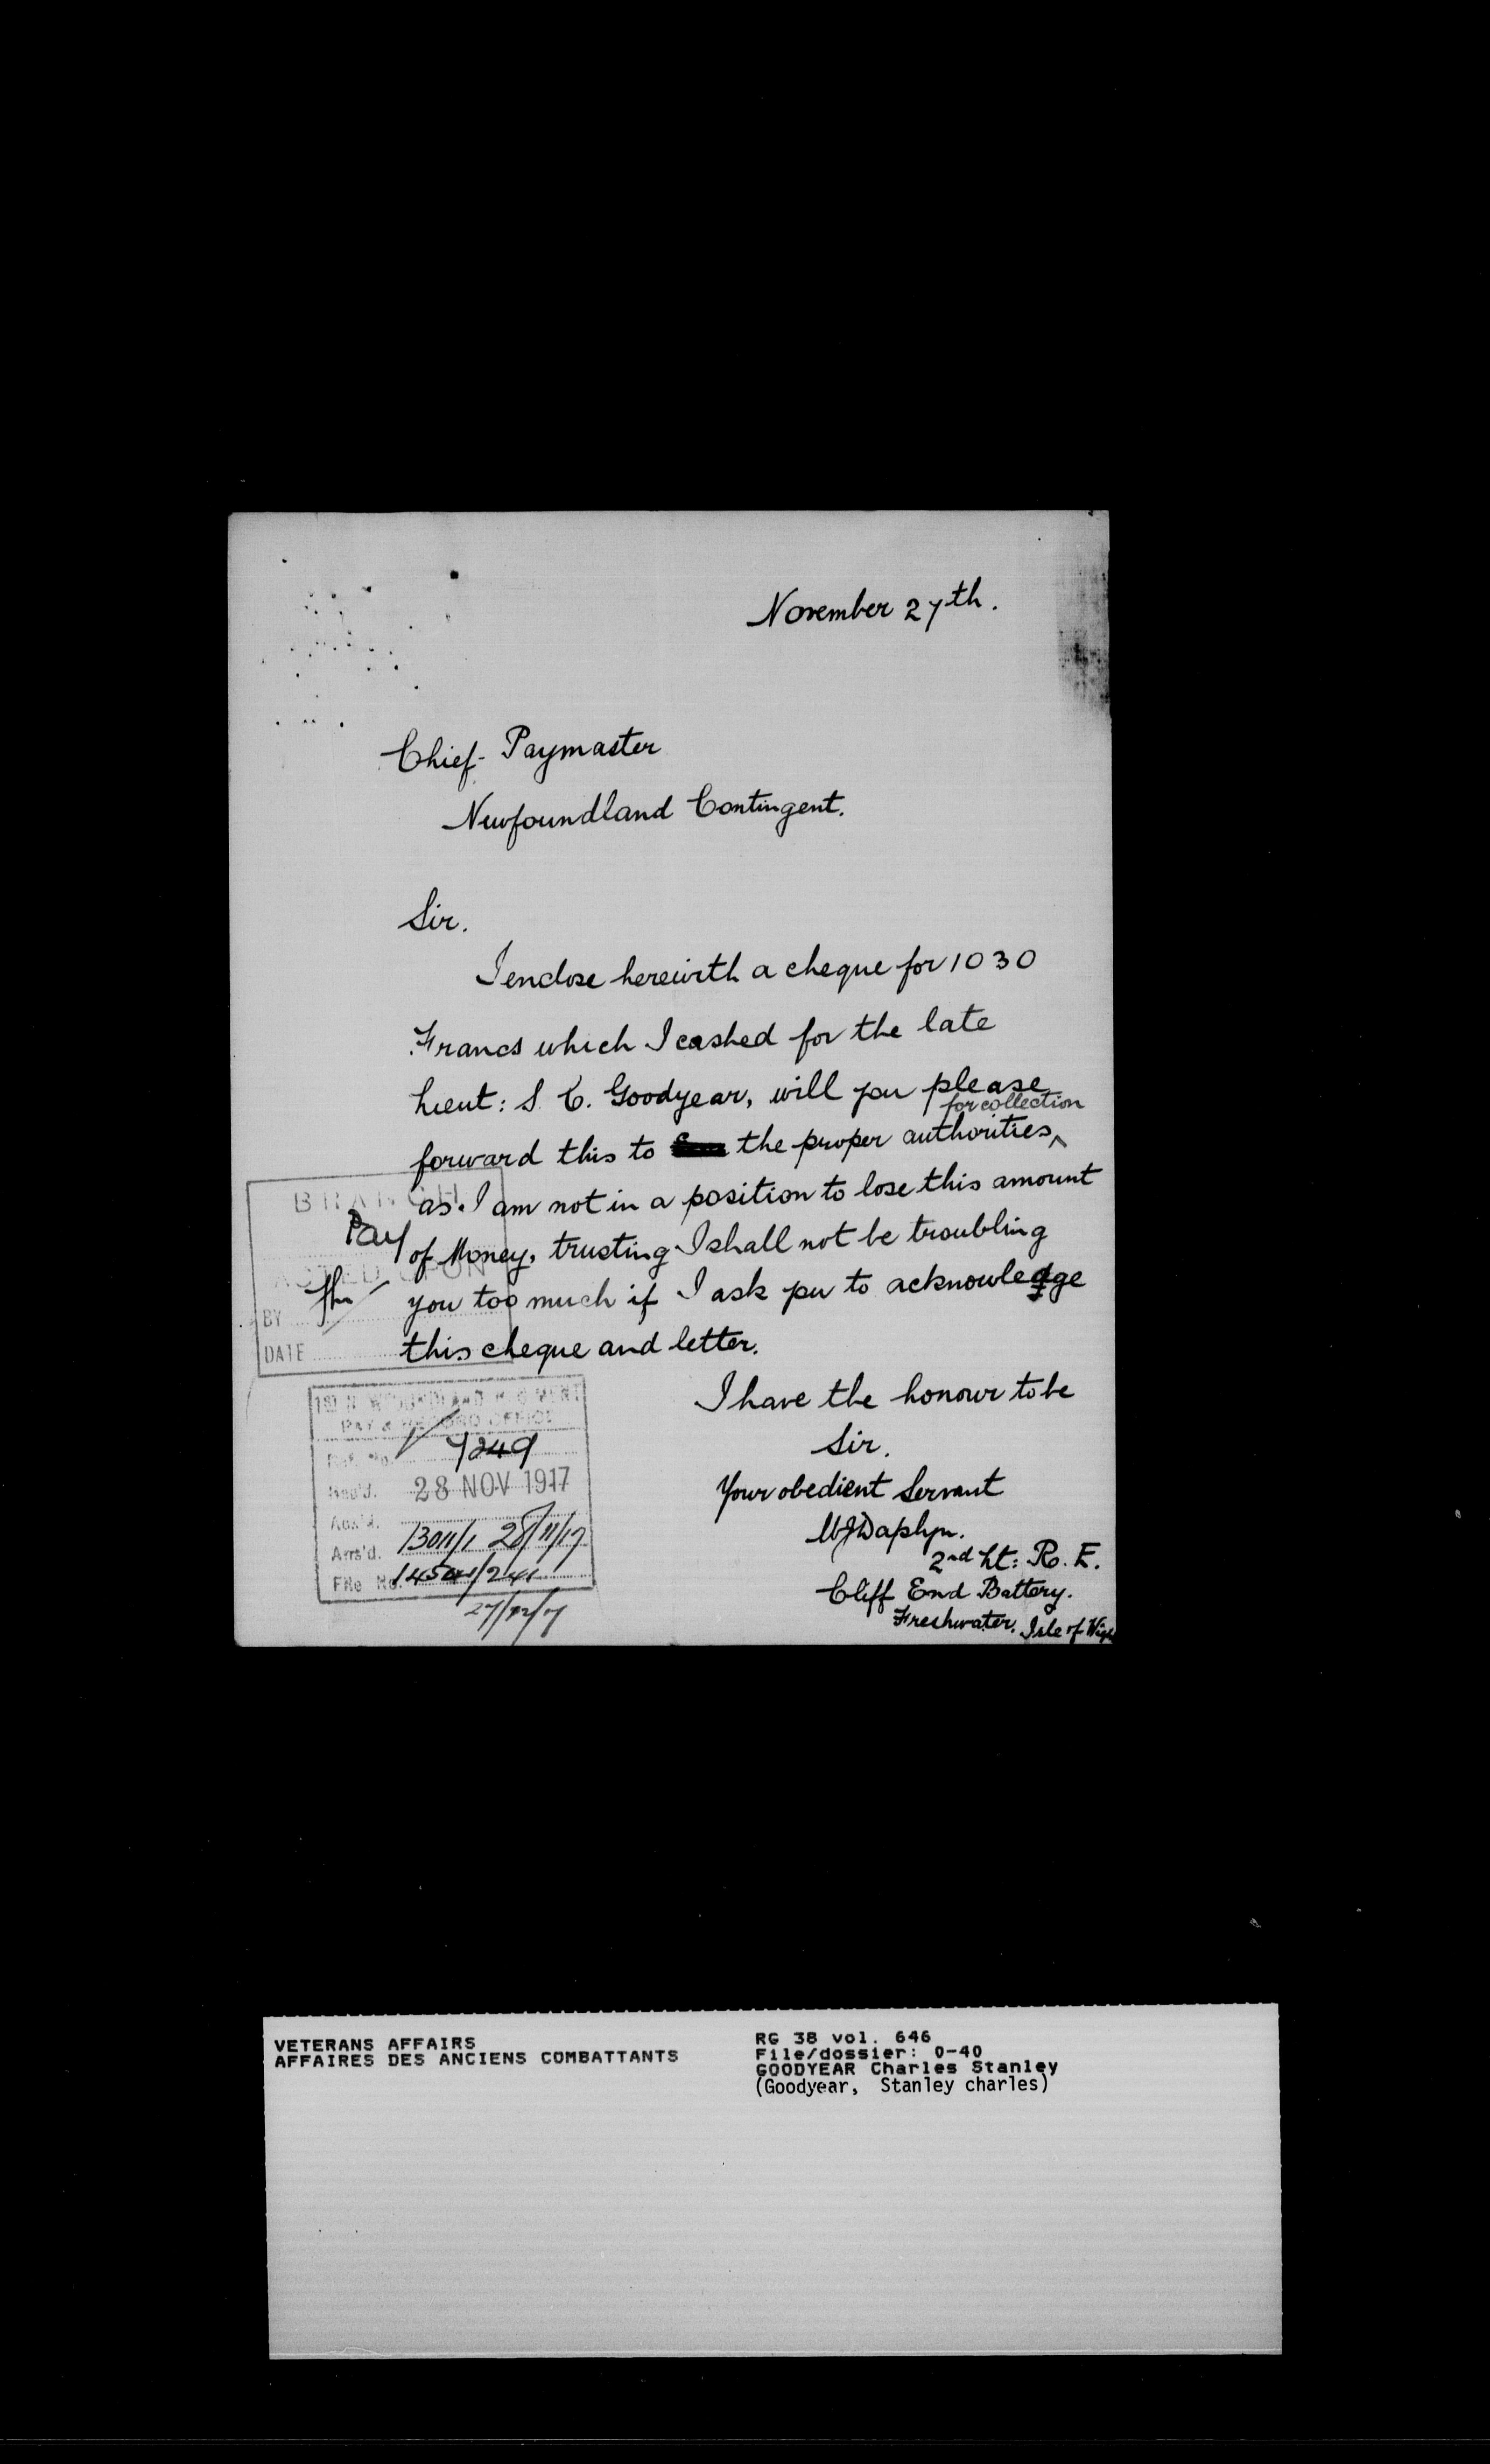 November 27th.
Chief Paymaster
Newfoundland Contingent.
Sir.
I enclose herewith a cheque for 1030
Francs which I cashed for the late
Lieut: S. C. Goodyear, will you please
for collection
forward this to the proper authorities,
as I am not in a position to lose this amount
of Money, trusting I shall not be troubling
you too much if I ask you to acknowledge
this cheque and letter.
I have the honour to be
Sir.
Your obedient Servant
2nd Lt: R. E.
Cliff End Battery.
Freshwater. Isle of
BRANCH
Pay
ACTED UPON
BY
DATE
PAY & RECORD OFFICE
Ref. No. 7249
Rec'd. 28 NOV 1917
Ans'd. 28/11/17
File No.
VETERANS AFFAIRS
AFFAIRES DES ANCIENS COMBATTANTS
RG 38 vol. 646
File/dossier: 0-40
GOODYEAR Charles Stanley
(Goodyear, Stanley charles)